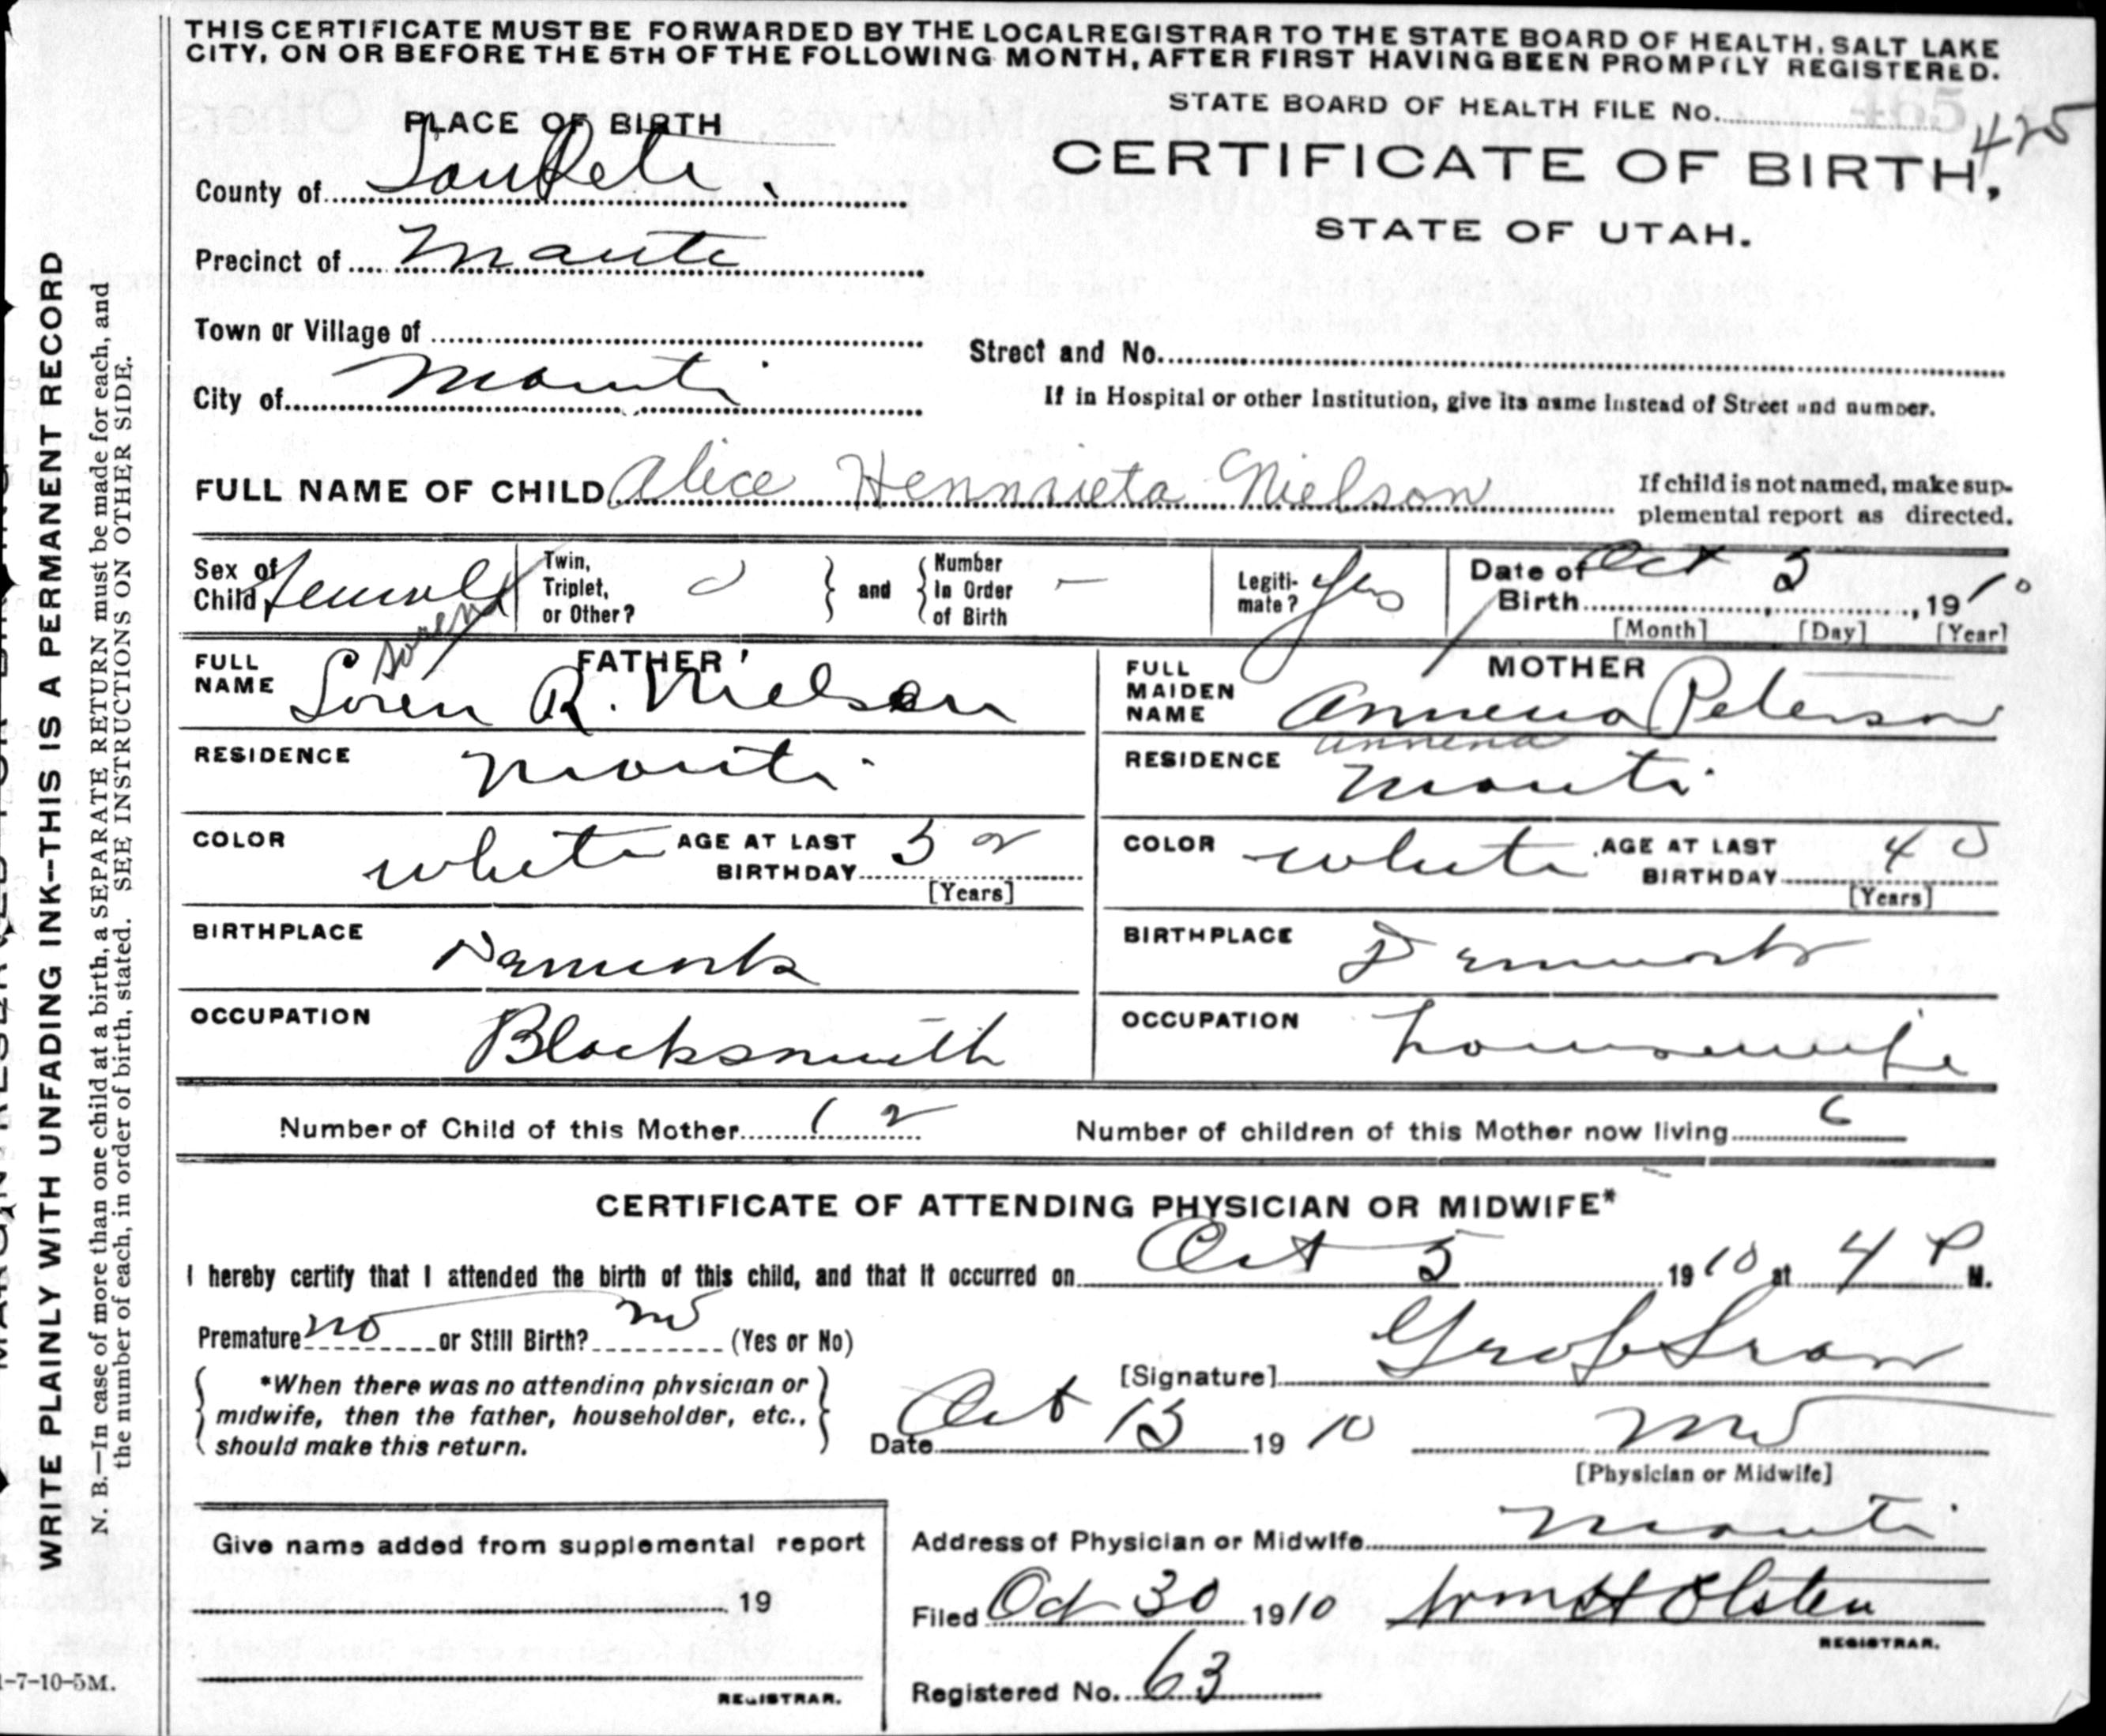 THIS CERTIFICATE MUST BE FORWARDED BY THE LOCAL REGISTRAR TO THE STATE BOARD OF HEALTH, SALT LAKE
CITY, ON OR BEFORE THE 5TH OF THE FOLLOWING MONTH, AFTER FIRST HAVING BEEN PROMPTLY REGISTERED.
STATE BOARD OF HEALTH FILE No. 425
465
PLACE OF BIRTH
CERTIFICATE OF BIRTH,
STATE OF UTAH.
County of SanPete.
Precinct of Manti
Town or Village of
Street and No.
City of Manti
If in Hospital or other Institution, give its name instead of Street and number.
FULL NAME OF CHILD Alice Hennrieta Nielson
If child is not named, make sup-
plemental report as directed.
Sex of Child Female
Twin, Triplet, or Other?
and
Number In Order of Birth —
Legiti-mate? Yes
Date of Birth Oct 5, 1910
[Month] [Day] [Year]
FATHER
FULL NAME Soren R. Nielson
Soren
MOTHER
FULL MAIDEN NAME Annena Peterson
Annena
RESIDENCE Manti
RESIDENCE Manti
COLOR white AGE AT LAST BIRTHDAY 52
[Years]
COLOR white AGE AT LAST BIRTHDAY 40
[Years]
BIRTHPLACE Denmark
BIRTHPLACE Denmark
OCCUPATION Blacksmith
OCCUPATION housewife
Number of Child of this Mother 12
Number of children of this Mother now living 6
CERTIFICATE OF ATTENDING PHYSICIAN OR MIDWIFE*
I hereby certify that I attended the birth of this child, and that it occurred on Oct 5 1910 at 4 P M.
Premature no or Still Birth? no (Yes or No)
[Signature]
*When there was no attending physician or
midwife, then the father, householder, etc.,
should make this return.
Date Oct 13 1910
MD
[Physician or Midwife]
Give name added from supplemental report
19
REGISTRAR.
Address of Physician or Midwife Manti
Filed Oct 30 1910 Wm H Olsten
REGISTRAR.
Registered No. 63
WRITE PLAINLY WITH UNFADING INK—THIS IS A PERMANENT RECORD
N. B.—In case of more than one child at a birth, a SEPARATE RETURN must be made for each, and
the number of each, in order of birth, stated. SEE INSTRUCTIONS ON OTHER SIDE.
-7-10-5M.